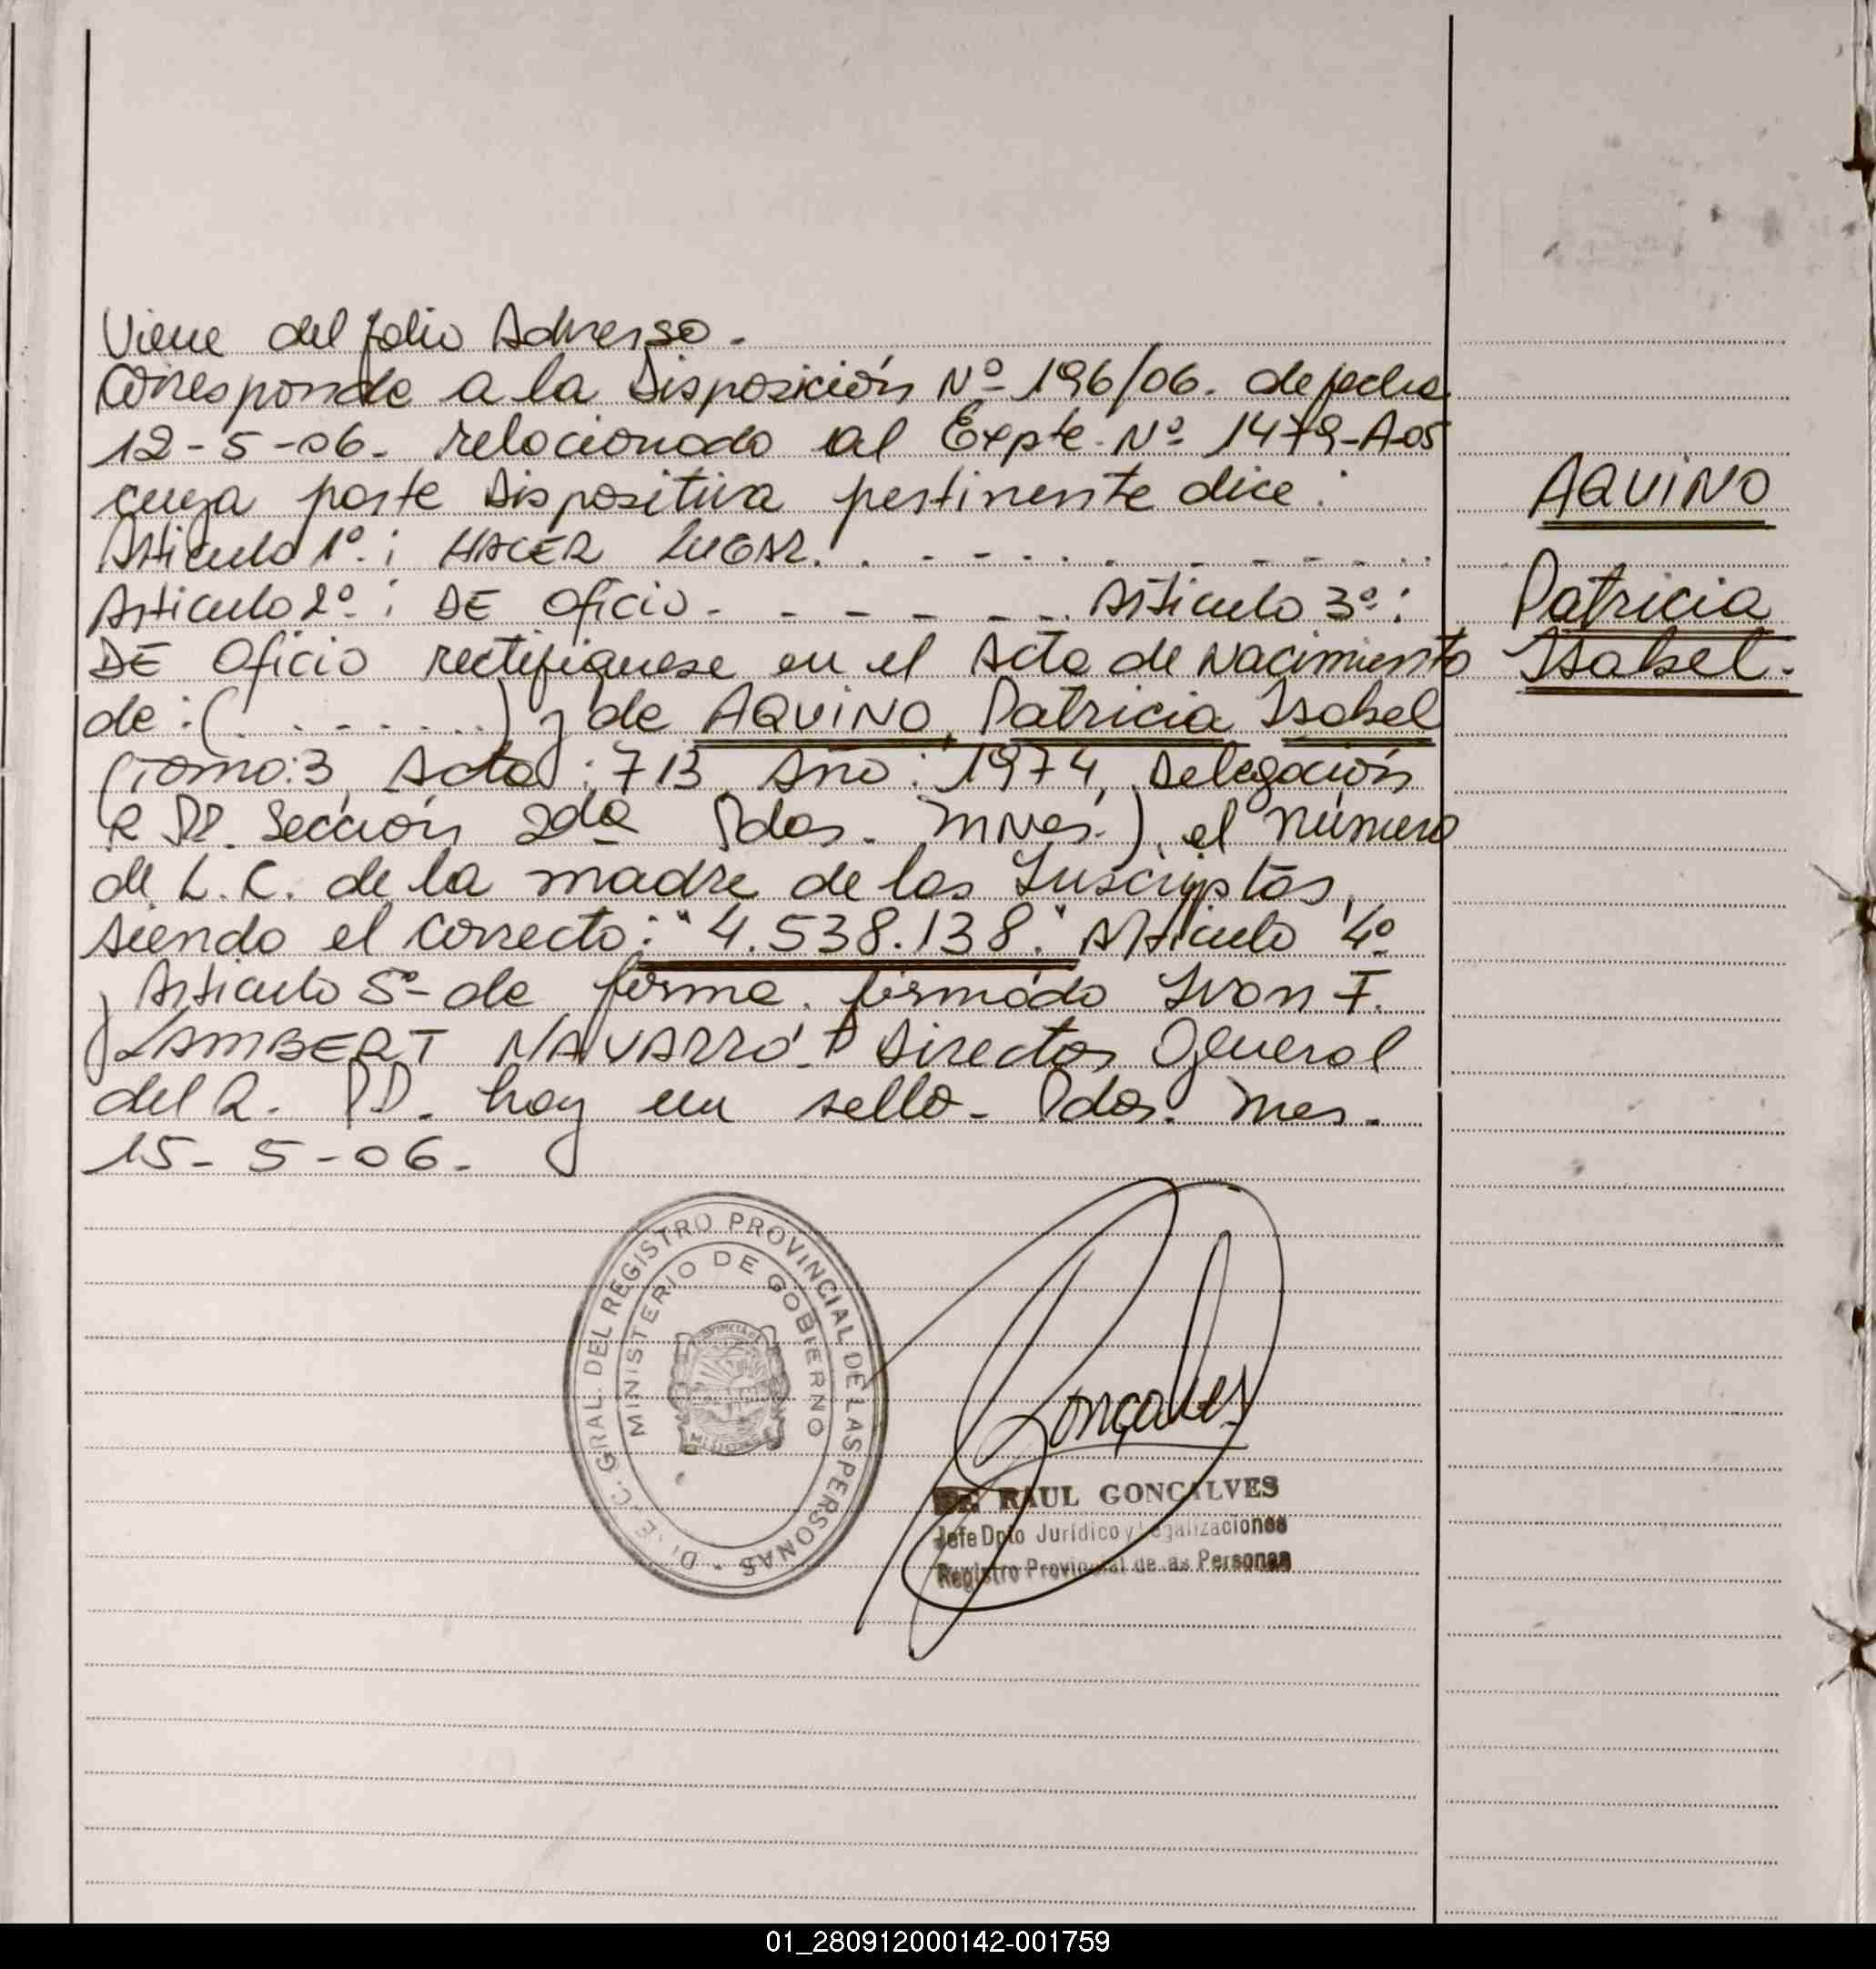 Viene del folio Adverso.
Corresponde a la Disposición Nº 196/06. de fecha
12-5-06. relacionado al Expte. Nº 1479-A-05
cuya parte Dispositiva pertinente dice:
Articulo 1º.: HACER LUGAR. . - - . . . - - - . .
Articulo 2º: DE Oficio. - - - - - . Articulo 3º:
DE Oficio rectifiquese en el Acta de Nacimiento
de: (. . - - . . .) y de AQUINO, Patricia Isabel
(Tomo: 3, Acta: 713 Año: 1974, Delegación
R PP. Sección 2da Pdas. Mnes.), el número
de L.C. de la madre de las Inscriptas,
siendo el correcto: "4.538.138." Articulo 4º
y Articulo 5º- de forma. firmado Ivon F.
LAMBERT NAVARRO. Director General
del R. PP. hay un sello. Pdas. Mnes.
15-5-06.
AQUINO
Patricia
Isabel.
DIREC. GRAL. DEL REGISTRO PROVINCIAL DE LAS PERSONAS
MINISTERIO DE GOBIERNO
MISIONES
Gonçalves
RAUL GONÇALVES
Jefe Dpto Jurídico y Legalizaciones
Registro Provincial de las Personas
01_280912000142-001759